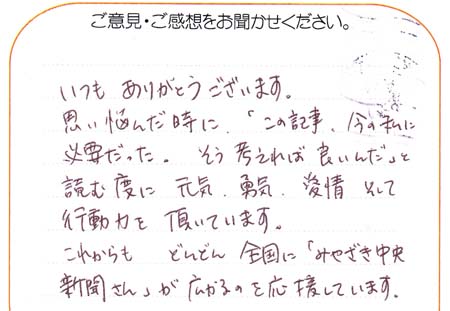 ご意見・ご感想をお聞かせください。
いつも ありがとうございます。
思い悩んだ時に、「この記事、今の私に
必要だった。そう考えれば良いんだ」と
読む度に 元気、勇気、愛情 そして
行動力を 頂いています。
これからも どんどん 全国に「みやざき中央
新聞さん」が 広がるのを応援しています。